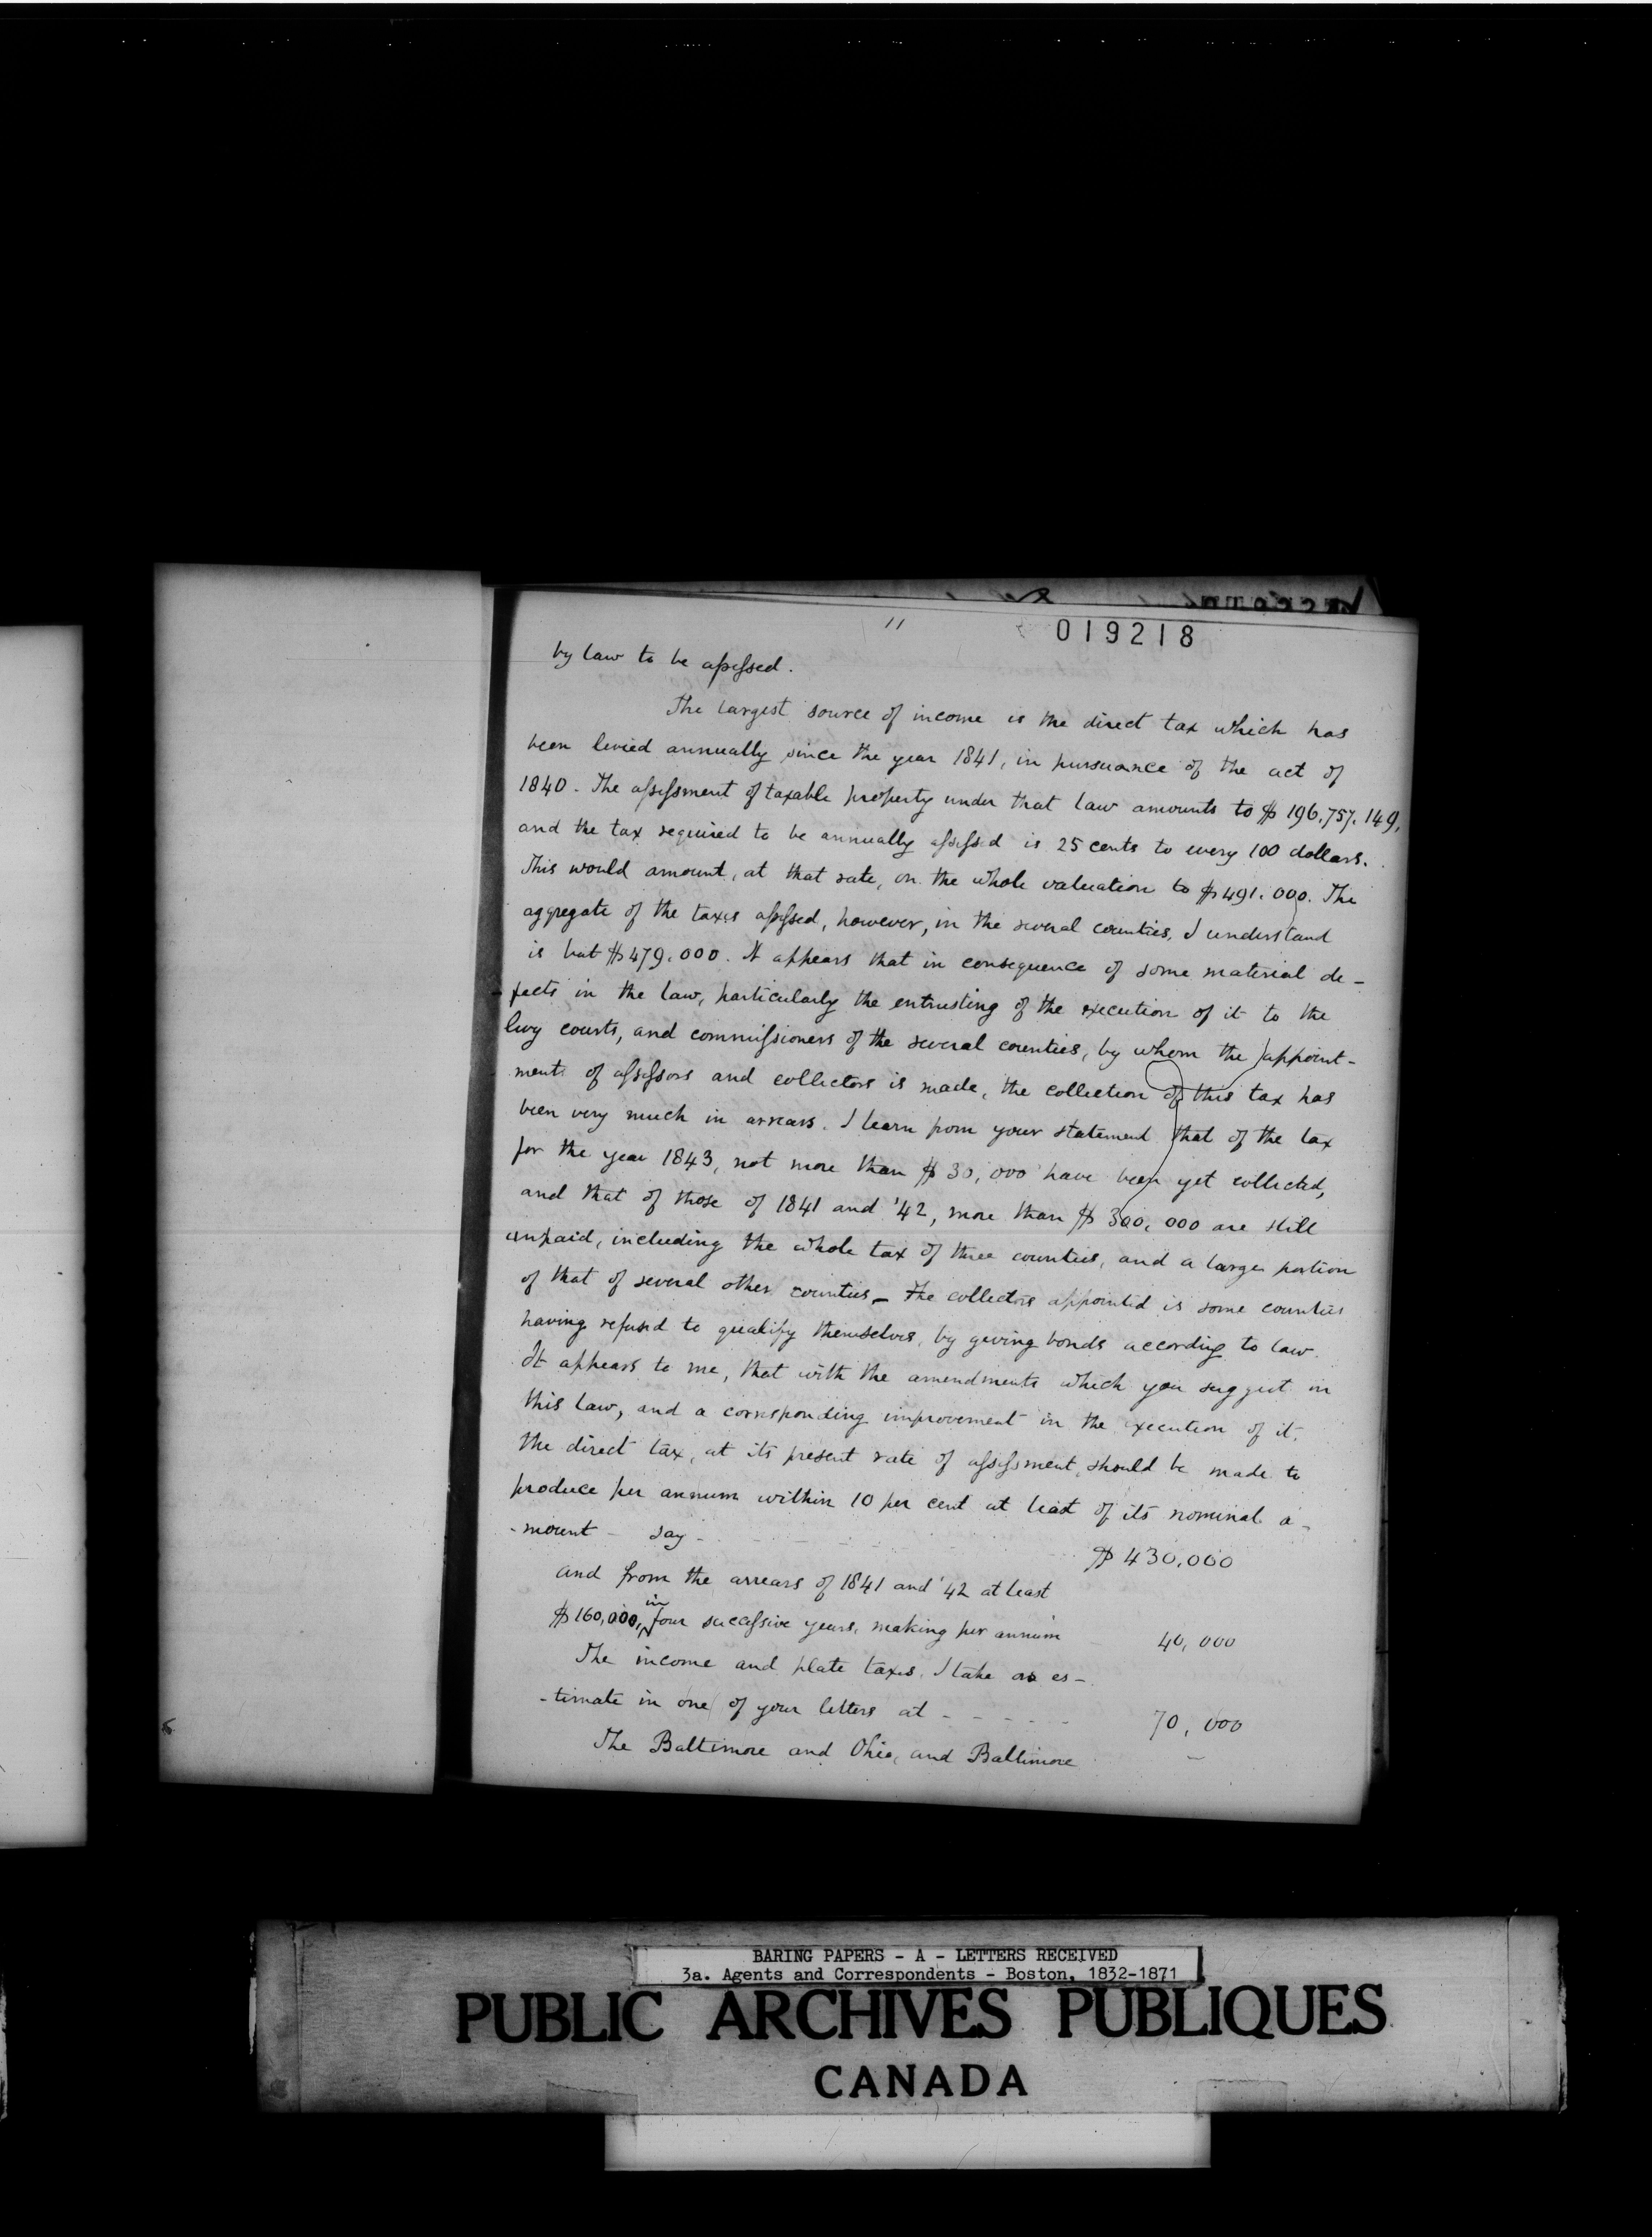 11
019218
by law to be assessed.
The largest source of income is the direct tax which has
been levied annually since the year 1841, in pursuance of the act of
1840. The assessment of taxable property under that law amounts to $196,757.149,
and the tax required to be annually assessed is 25 cents to every 100 dollars.
This would amount, at that rate, on the whole valuation to $491.000. The
aggregate of the taxes assessed, however, in the several counties, I understand
is but $479.000. It appears that in consequence of some material de-
-fects in the law, particularly the entrusting of the execution of it to the
levy courts, and commissioners of the several counties, by whom the appoint-
ment of assessors and collectors is made, the collection of this tax has
been very much in arrears. I learn from your statement that of the tax
for the year 1843, not more than $30,000 have been yet collected,
and that of those of 1841 and '42, more than $300,000 are still
unpaid, including the whole tax of three counties, and a large portion
of that of several other counties - the collectors appointed is some counties
having refused to qualify themselves, by giving bonds according to law.
It appears to me, that with the amendments which you suggest in
this law, and a corresponding improvement in the execution of it,
the direct tax, at its present rate of assessment, should be made to
produce per annum within 10 per cent at least of its nominal a-
-mount - say - $430,000
and from the arrears of 1841 and '42 at least
$160,000, in four successive years, making per annum 40,000
The income and plate taxes, I take as es-
-timate in one of your letters at - - - - - 70,000
The Baltimore and Ohio, and Baltimore
BARING PAPERS - A - LETTERS RECEIVED
3a. Agents and Correspondents - Boston, 1832-1871
PUBLIC ARCHIVES PUBLIQUES
CANADA